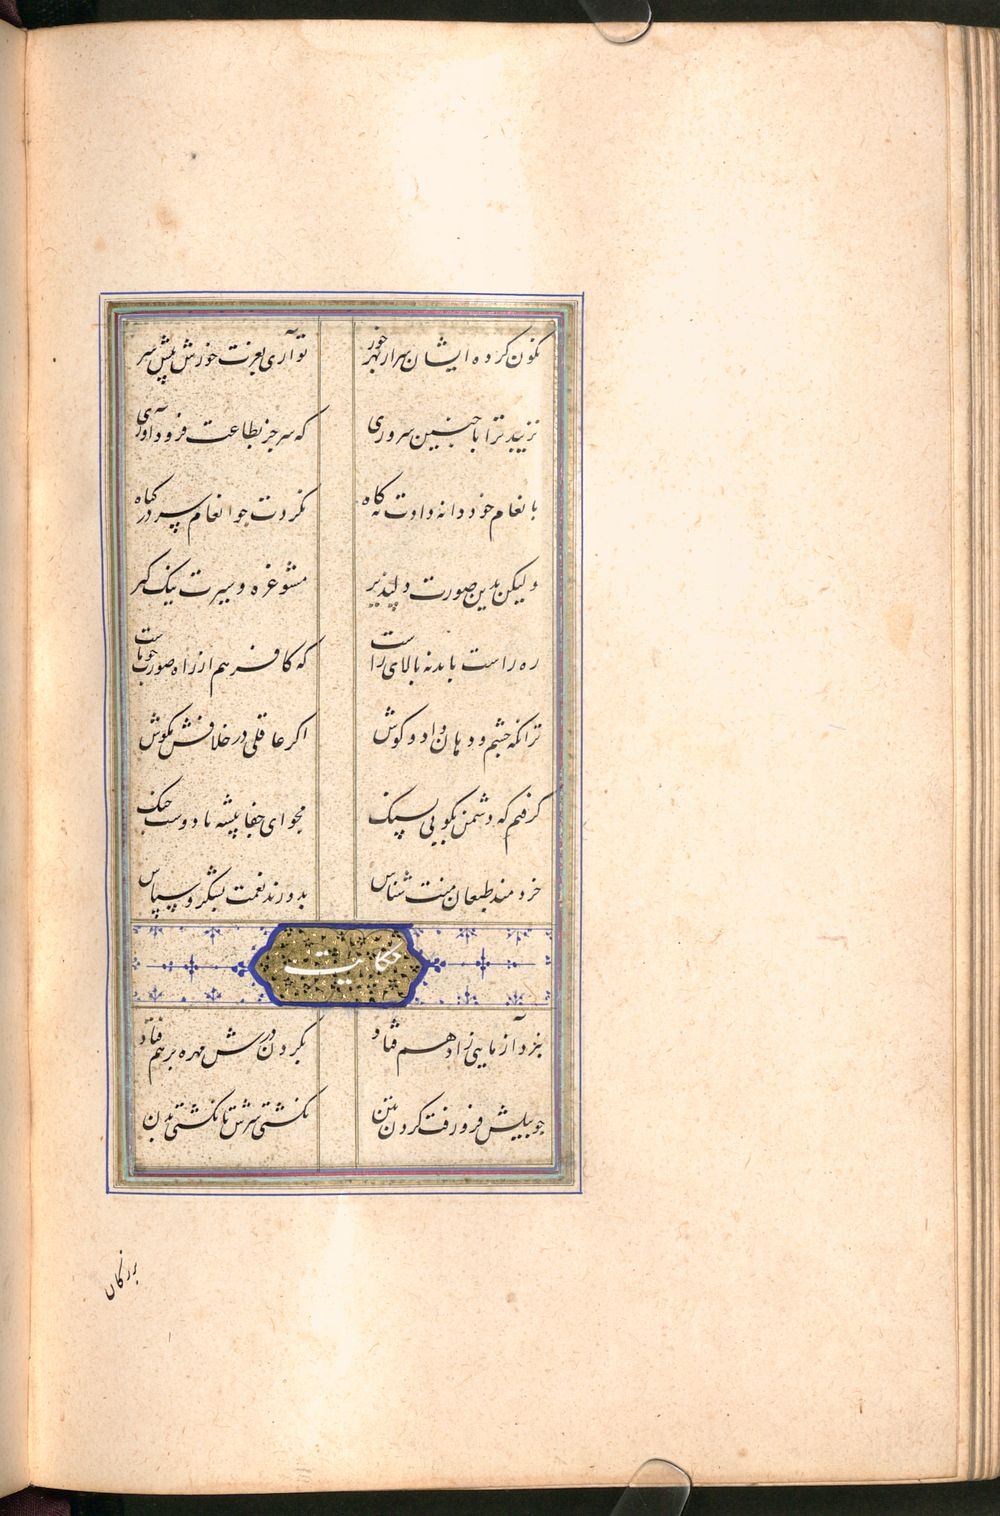 نکون کرده ایشان سر از بهر خور تو آری بعزت خورش پیش سر
نزیبد ترا با چنین سروری که سر جز بطاعت فرود آوری
بانعام خود دانه دادت نه کاه نکردت چو انعام سر در کیاه
ولیکن بدین صورت دلپذیر مشو غره و سیرت نیک کیر
ره راست باید نه بالای راست که کافر هم از راه صورت چو ماست
ترا آنکه چشم و دهان داد و کوش اگر عاقلی در خلافش مکوش
کرفتم که دشمن بکوبی بسنک مجو ای جفا پیشه با دوست جنک
خردمند طبعان منت شناس بدوزند نعمت بشکر و سپاس
حکایت
نبرد آزمایی ز ادهم فتاد بکردن درش مهره بر هم فتاد
چو پیلش فرو رفت کردن بتن نکشتی سرش تا نکشتی بدن
بزرکان